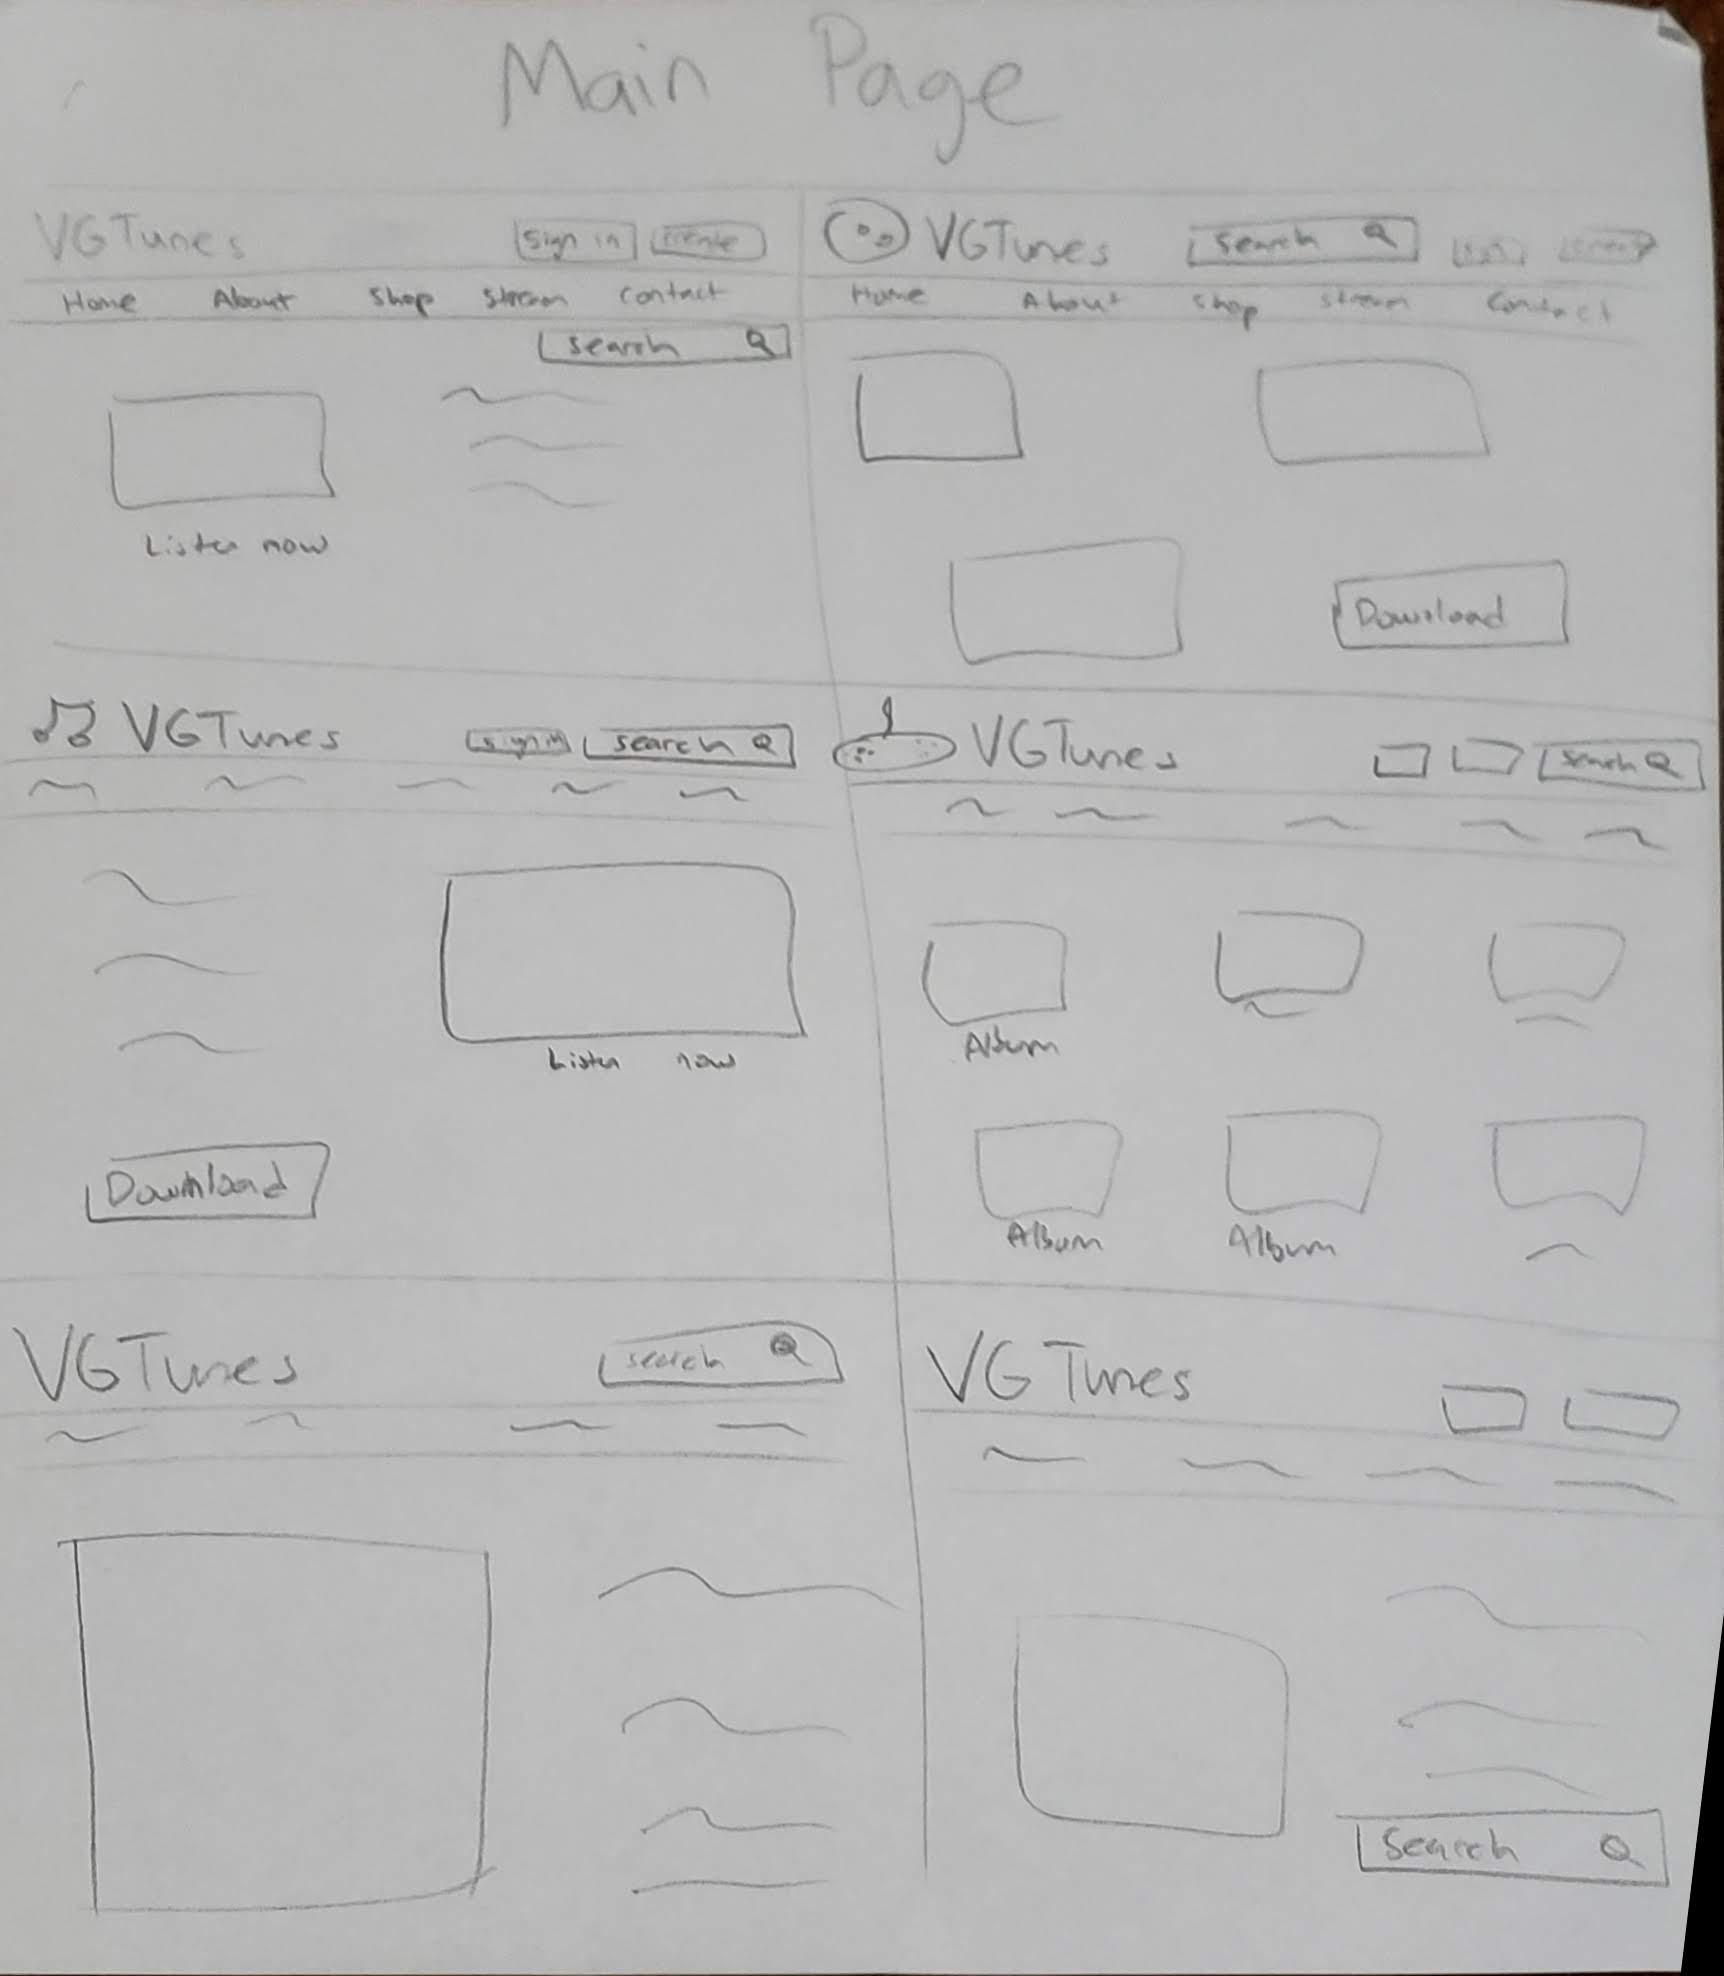 Main Page
VGTunes
Sign in
create
Home About Shop Stream Contact
Search
Listen now
VGTunes
Search
Home About Shop Stream Contact
Download
VGTunes
sign in
search
Listen now
Download
VGTunes
Search
Album
Album Album
VGTunes
search
VGTunes
Search